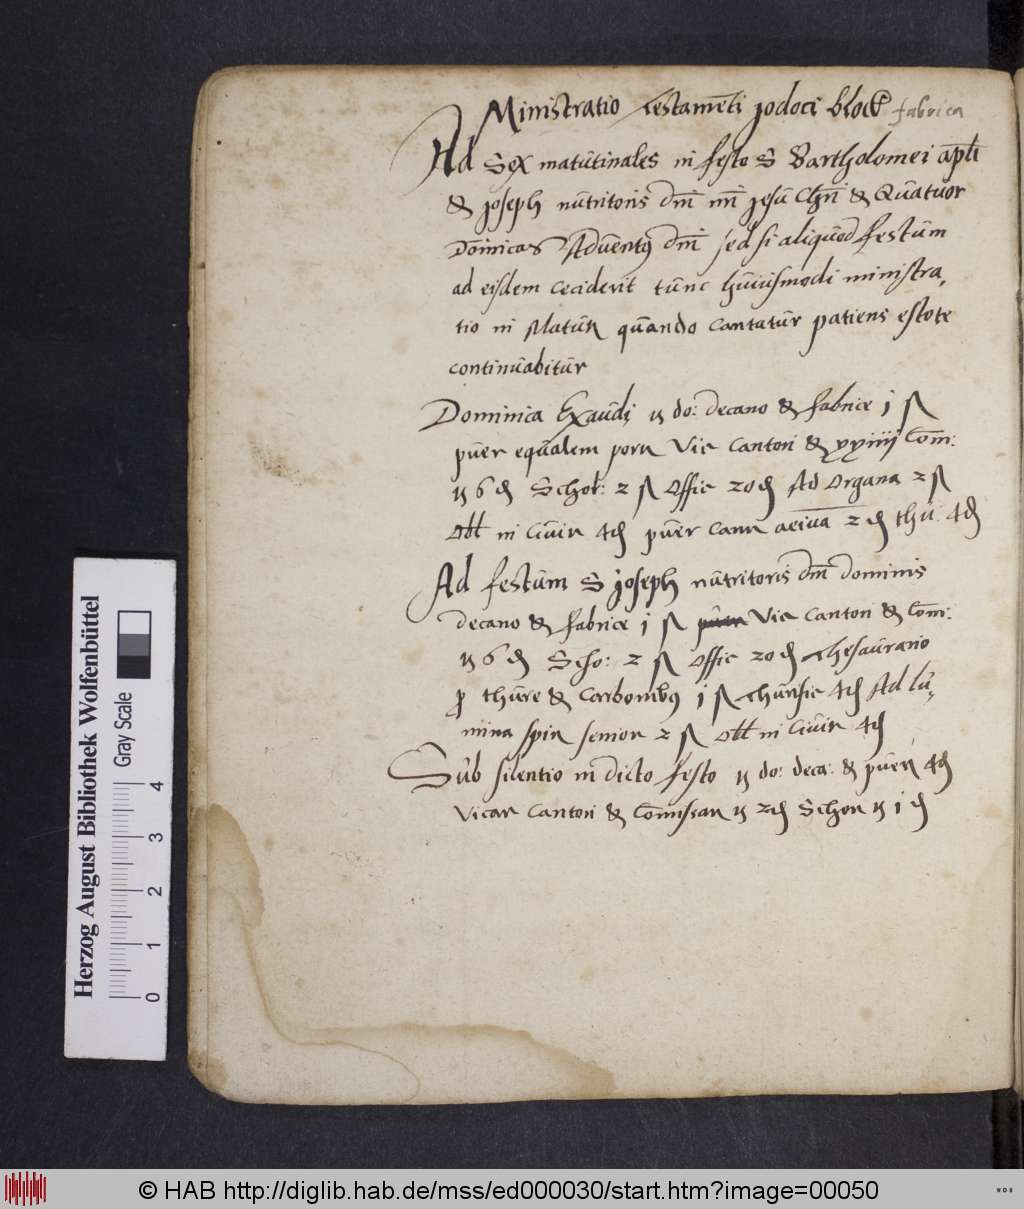 Ministratio Testamēti jodoci block fabrica
Ad Sex matutinales in festo S Bartholomei apli
& joseph nutritoris dm̄ nr̄i jesu Chri & Quatuor
Dominicas Adventus dm̄ sed si aliquod festum
ad eisdem ceciderit tunc huiusmodi ministra,
tio in Matur quando cantatur patiens estote
continuabitur
Dominica Exaudi do: decano & fabrice j
puer equalem porn Vic Cantori & xxiiij Com:
6 Schol: 2 Offic 20 Ad Organa 2
Obl in Civir 4 puer Cann 2 thu 4
Ad festum S joseph nutritoris dm̄ dominis
decano & fabrice j Vic Cantori & Com:
6 Scho: 2 Offic 20 Thesaurario
p thure & Carbonibus j Thurific 4 Ad lu,
mina senior 2 Obl in Civir 4
Sub silentio in dicto festo do: deca: & pueri 4
Vicar Cantori & Comissar 2 Schor j
Herzog August Bibliothek Wolfenbüttel
Gray Scale
0 1 2 3 4
© HAB http://diglib.hab.de/mss/ed000030/start.htm?image=00050